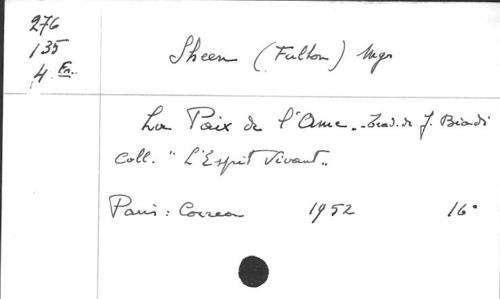 276
135
4. Fr.
Sheen (Fulton) Mgr
La Paix de l'Ame.. trad. de J. Biadi
Coll. " L'Esprit Vivant..
Paris : Correa 1952 16°